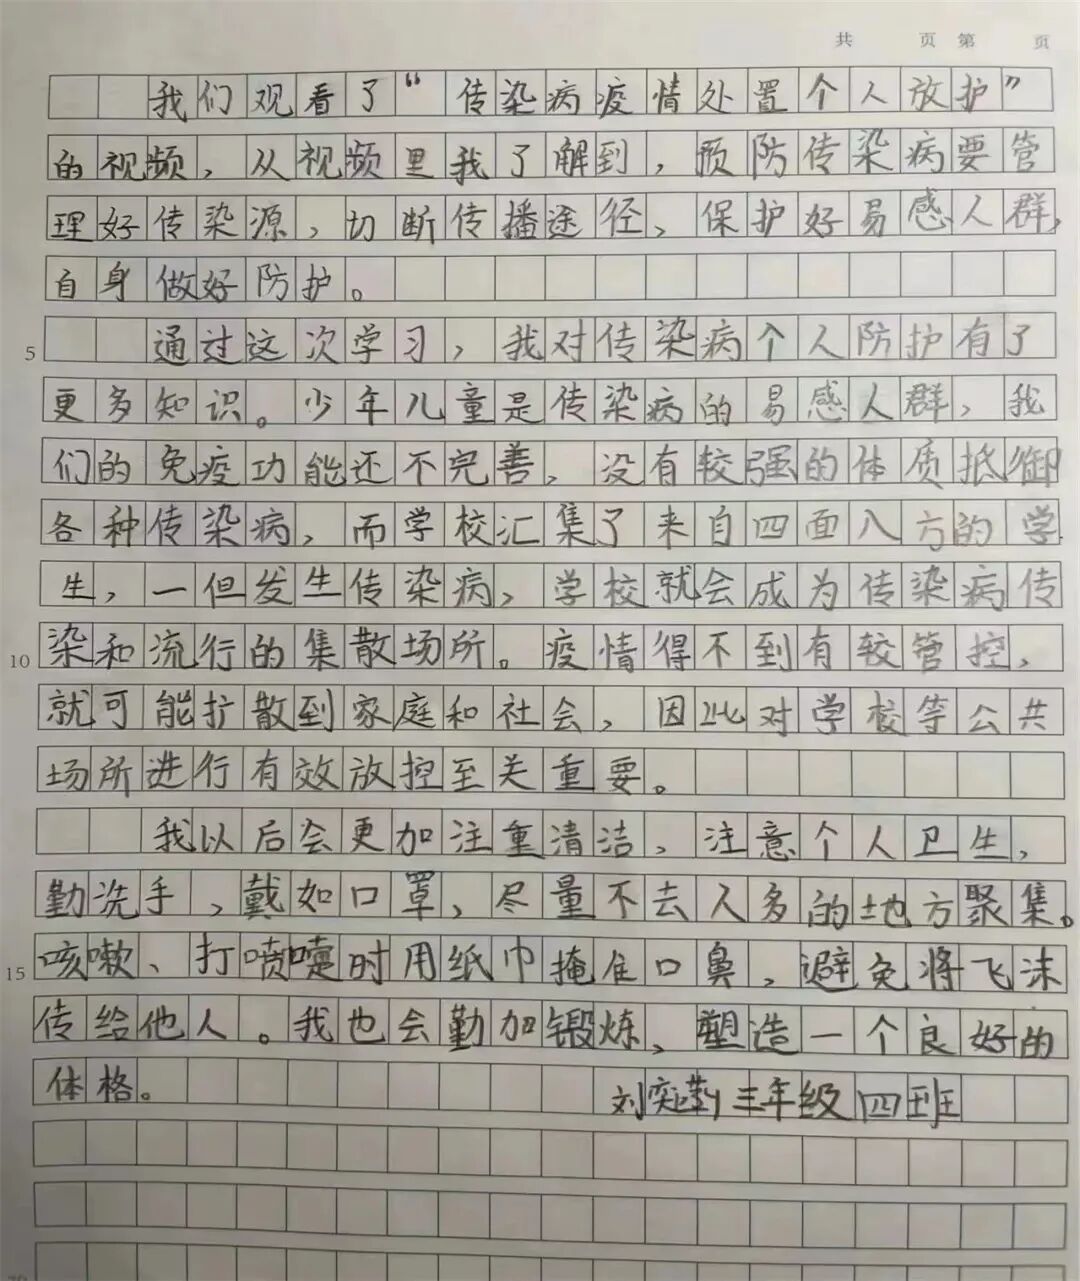 共 页 第 页
我们观看了“传染病疫情处置个人放护”
的视频，从视频里我了解到，预防传染病要管
理好传染源，切断传播途径、保护好易感人群，
自身做好防护。
5 通过这次学习，我对传染病个人防护有了
更多知识。少年儿童是传染病的易感人群，我
们的免疫功能还不完善，没有较强的体质抵御
各种传染病，而学校汇集了来自四面八方的学
生，一但发生传染病，学校就会成为传染病传
10 染和流行的集散场所。疫情得不到有较管控，
就可能扩散到家庭和社会，因此对学校等公共
场所进行有效放控至关重要。
我以后会更加注重清洁，注意个人卫生，
勤洗手，戴如口罩，尽量不去人多的地方聚集。
15 咳嗽、打喷嚏时用纸巾掩住口鼻，避免将飞沫
传给他人。我也会勤加锻炼，塑造一个良好的
体格。
刘奕 三年级四班